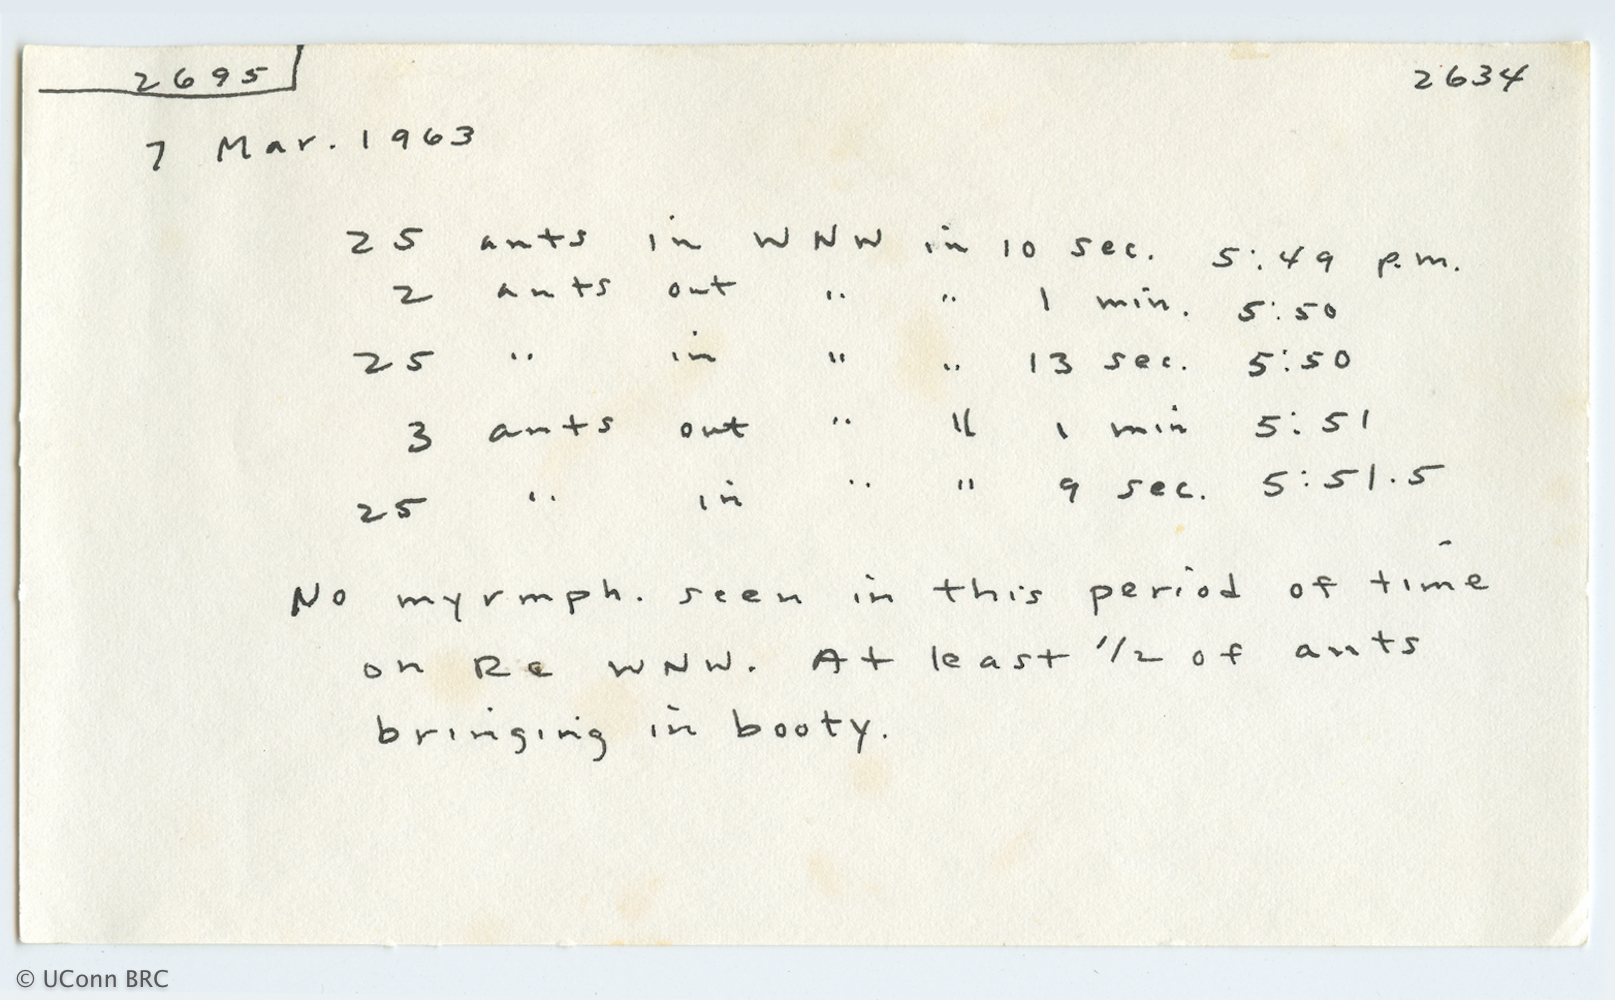 2695 2634
7 Mar. 1963
25 ants in WNW in 10 sec. 5:49 p.m.
2 ants out " " 1 min. 5:50
25 " in " " 13 sec. 5:50
3 ants out " " 1 min 5:51
25 " in " " 9 sec. 5:51.5
No myrmph. seen in this period of time
on Re WNW. At least 1/2 of ants
bringing in booty.
© UConn BRC